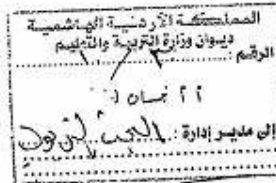 المملكة الأردنية الهاشمية
ديوان وزارة التربية والتعليم
الرقم :
٢٢ نيسان
إلى مدير إدارة : البحث التربوي